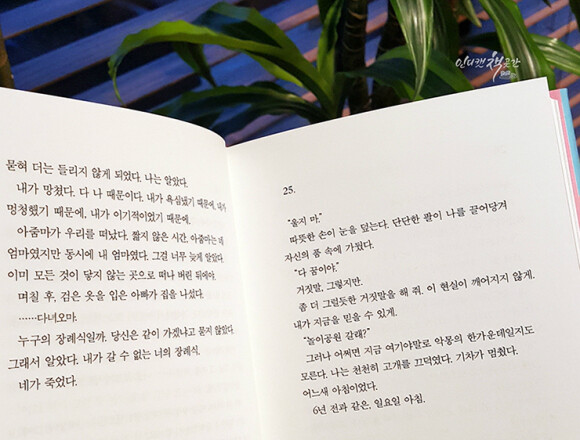 인디캣책곳간
묻혀 더는 들리지 않게 되었다. 나는 알았다.
내가 망쳤다. 다 나 때문이다. 내가 욕심냈기 때문에, 내가
멍청했기 때문에, 내가 이기적이었기 때문에.
아줌마가 우리를 떠났다. 짧지 않은 시간, 아줌마는 네
엄마였지만 동시에 내 엄마였다. 그걸 너무 늦게 알았다.
이미 모든 것이 닿지 않는 곳으로 떠나 버린 뒤에야.
며칠 후, 검은 옷을 입은 아빠가 집을 나섰다.
……다녀오마.
누구의 장례식일까. 당신은 같이 가겠냐고 묻지 않았다.
그래서 알았다. 내가 갈 수 없는 너의 장례식.
네가 죽었다.
25.
“울지 마.”
따뜻한 손이 눈을 덮는다. 단단한 팔이 나를 끌어당겨
자신의 품 속에 가뒀다.
“다 꿈이야.”
거짓말, 그렇지만.
좀 더 그럴듯한 거짓말을 해 줘. 이 현실이 깨어지지 않게.
내가 지금을 믿을 수 있게.
“놀이공원 갈래?”
그러나 어쩌면 지금 여기야말로 악몽의 한가운데일지도
모른다. 나는 천천히 고개를 끄덕였다. 기차가 멈췄다.
어느새 아침이었다.
6년 전과 같은, 일요일 아침.